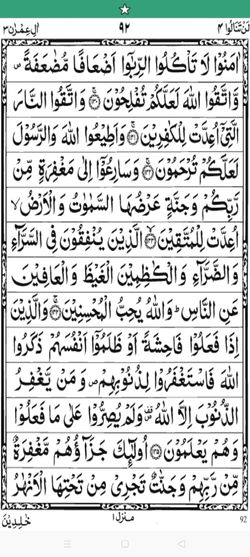 لَنْ تَنَالُوا ٤ ٩٢ اٰلِ عِمْرٰن ٣
اٰمَنُوْا لَا تَاْكُلُوا الرِّبٰۤوا اَضْعَافًا مُّضٰعَفَةً ۪
وَّاتَّقُوا اللّٰهَ لَعَلَّكُمْ تُفْلِحُوْنَ ﴿۱۳۰﴾ وَاتَّقُوا النَّارَ
الَّتِيْۤ اُعِدَّتْ لِلْكٰفِرِيْنَ ﴿۱۳۱﴾ وَاَطِيْعُوا اللّٰهَ وَالرَّسُوْلَ
لَعَلَّكُمْ تُرْحَمُوْنَ ﴿۱۳۲﴾ وَسَارِعُوْۤا اِلٰى مَغْفِرَةٍ مِّنْ
رَّبِّكُمْ وَجَنَّةٍ عَرْضُهَا السَّمٰوٰتُ وَالْاَرْضُ ۙ
اُعِدَّتْ لِلْمُتَّقِيْنَ ﴿۱۳۳﴾ الَّذِيْنَ يُنْفِقُوْنَ فِي السَّرَّآءِ
وَالضَّرَّآءِ وَالْكٰظِمِيْنَ الْغَيْظَ وَالْعَافِيْنَ
عَنِ النَّاسِ ؕ وَاللّٰهُ يُحِبُّ الْمُحْسِنِيْنَ ﴿۱۳۴﴾ وَالَّذِيْنَ
اِذَا فَعَلُوْا فَاحِشَةً اَوْ ظَلَمُوْۤا اَنْفُسَهُمْ ذَكَرُوا
اللّٰهَ فَاسْتَغْفَرُوْا لِذُنُوْبِهِمْ ۪ وَمَنْ يَّغْفِرُ
الذُّنُوْبَ اِلَّا اللّٰهُ ۪ۛ وَلَمْ يُصِرُّوْا عَلٰى مَا فَعَلُوْا
وَهُمْ يَعْلَمُوْنَ ﴿۱۳۵﴾ اُولٰٓئِكَ جَزَآؤُهُمْ مَّغْفِرَةٌ
مِّنْ رَّبِّهِمْ وَجَنّٰتٌ تَجْرِيْ مِنْ تَحْتِهَا الْاَنْهٰرُ
خٰلِدِيْنَ منزل ١ 92